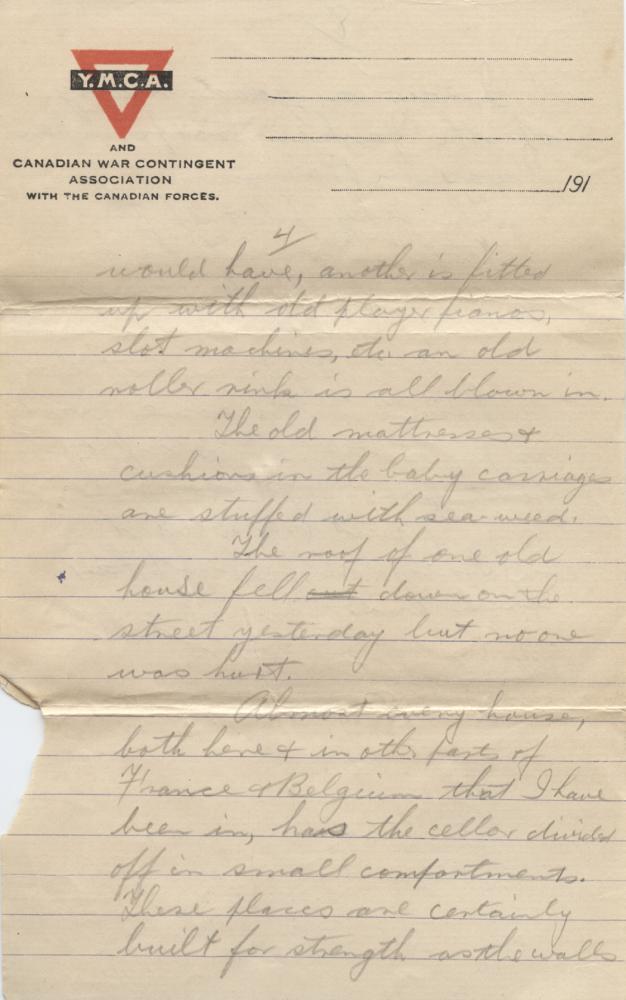 Y.M.C.A.
AND
CANADIAN WAR CONTINGENT
ASSOCIATION
WITH THE CANADIAN FORCES.
191
4/
would have, another is fitted
up with old player pianos,
slot machines, etc. an old
roller rink is all blown in.
The old mattresses &
cushions in the baby carriages
are stuffed with sea-weed.
The roof of one old
house fell out down on the
street yesterday but no one
was hurt.
Almost every house,
both here & in other parts of
France & Belgium that I have
been in, has the cellar divided
off in small compartments.
These places are certainly
built for strength as the walls